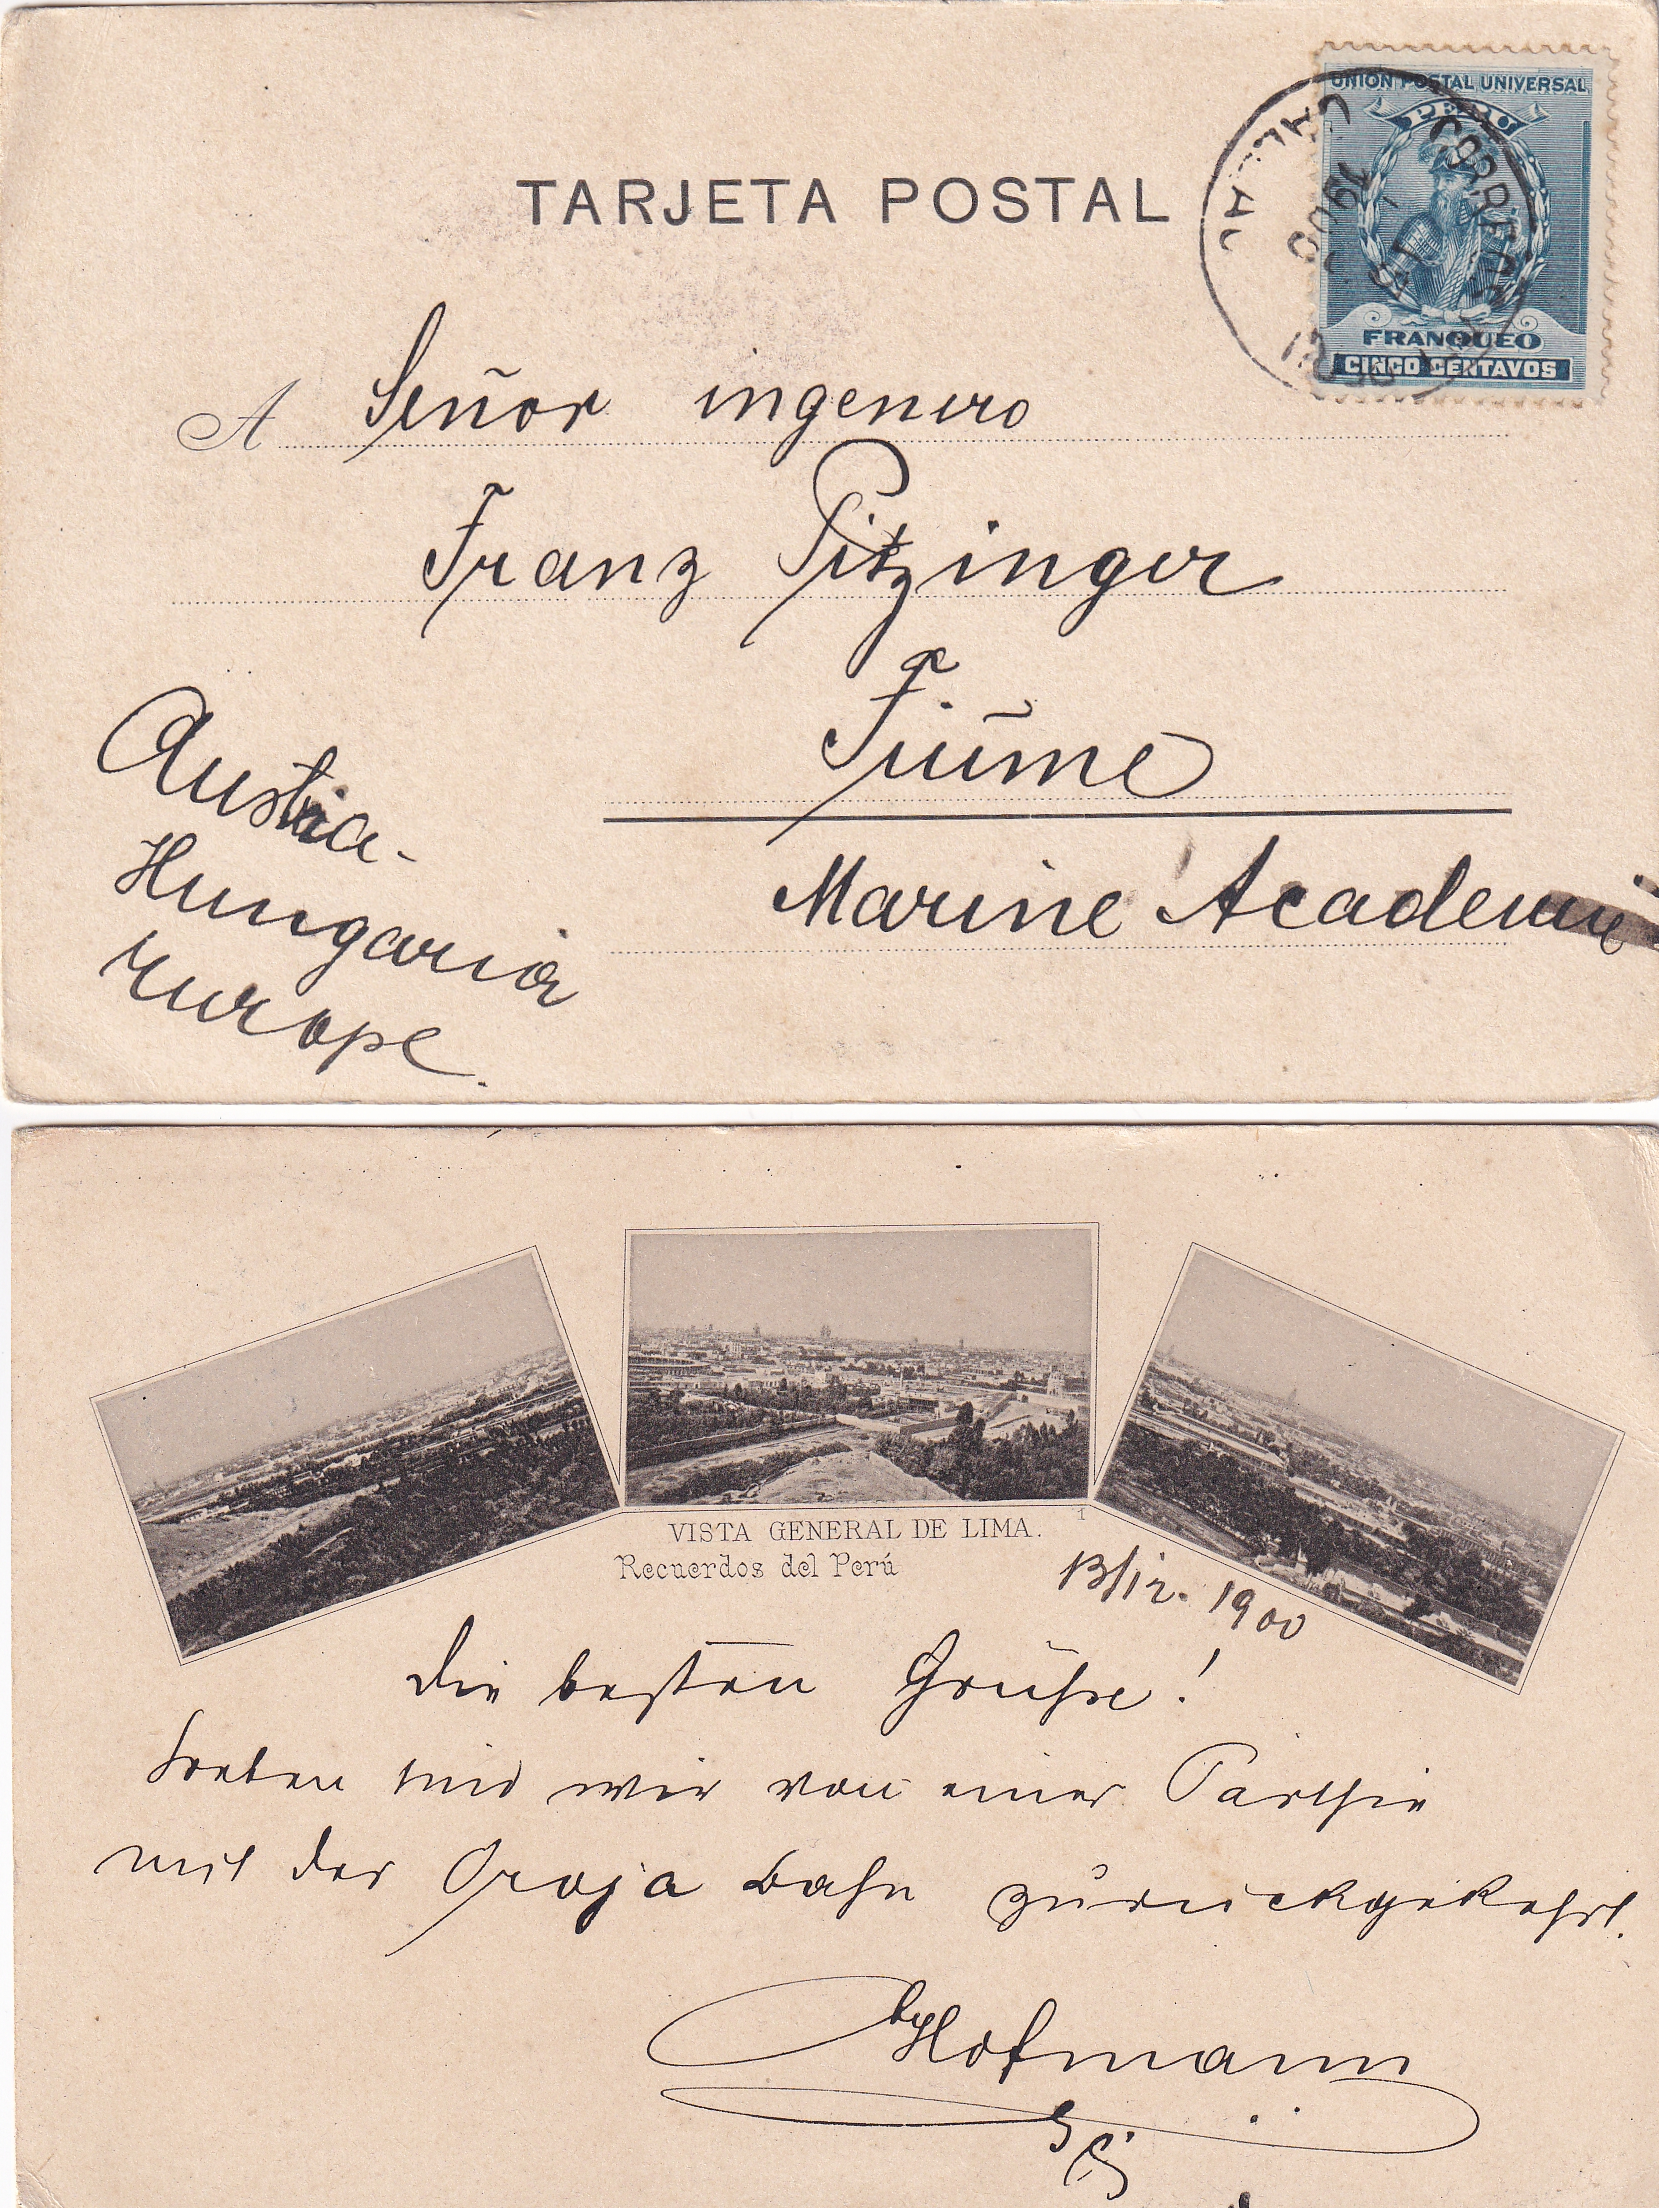 TARJETA POSTAL
UNION POSTAL UNIVERSAL
PERU
FRANQUEO
CINCO CENTAVOS
1900
A Señor ingeniro
Franz Pitzinger
Fiūme
Marine Academie
Austria-
Hungaria
Europe.
VISTA GENERAL DE LIMA. 1
Recuerdos del Perú
13/12. 1900
Die besten Grüße!
Soeben sind wir von einer Parthie
mit der Oroja Bahn zurückgekehrt.
Hofmann